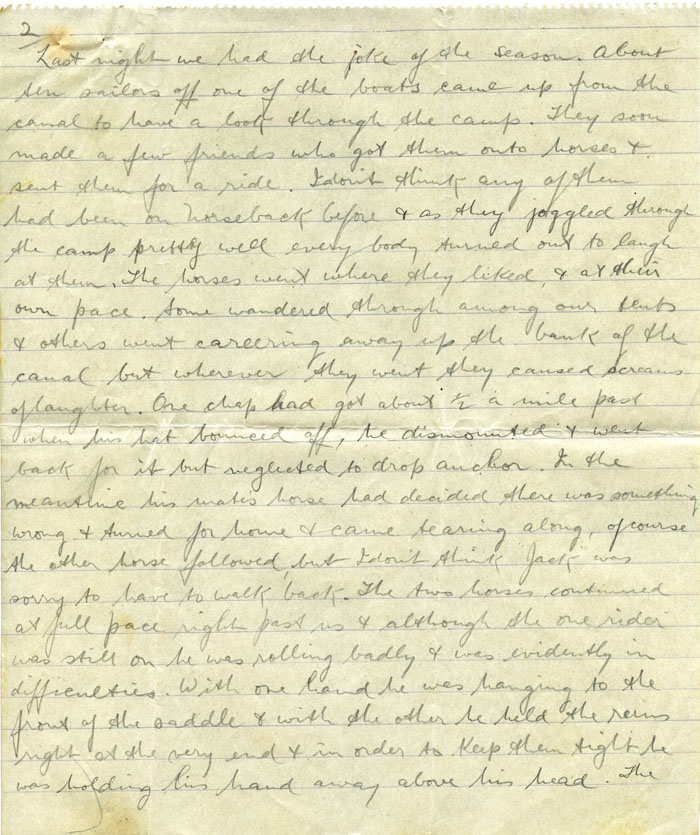 2
Last night we had the joke of the season. About
ten sailors off one of the boats came up from the
canal to have a look through the camp. They soon
made a few friends who got them onto horses &
sent them for a ride. I don't think any of them
had been on horseback before & as they joggled through
the camp pretty well every body turned out to laugh
at them. The horses went where they liked, & at their
own pace. Some wandered through among our tents
& others went careering away up the bank of the
canal but wherever they went they caused screams
of laughter. One chap had got about ½ a mile past
when his hat bounced off, he dismounted & went
back for it but neglected to drop anchor. In the
meantime his mates horse had decided there was something
wrong & turned for home & came tearing along, ofcourse
the other horse followed, but I don't think "Jack" was
sorry to have to walk back. The two horses continued
at full pace right past us & although the one rider
was still on he was rolling badly & was evidently in
difficulties. With one hand he was hanging to the
front of the saddle & with the other he held the reins
right at the very end & in order to keep them tight he
was holding his hand away above his head. The